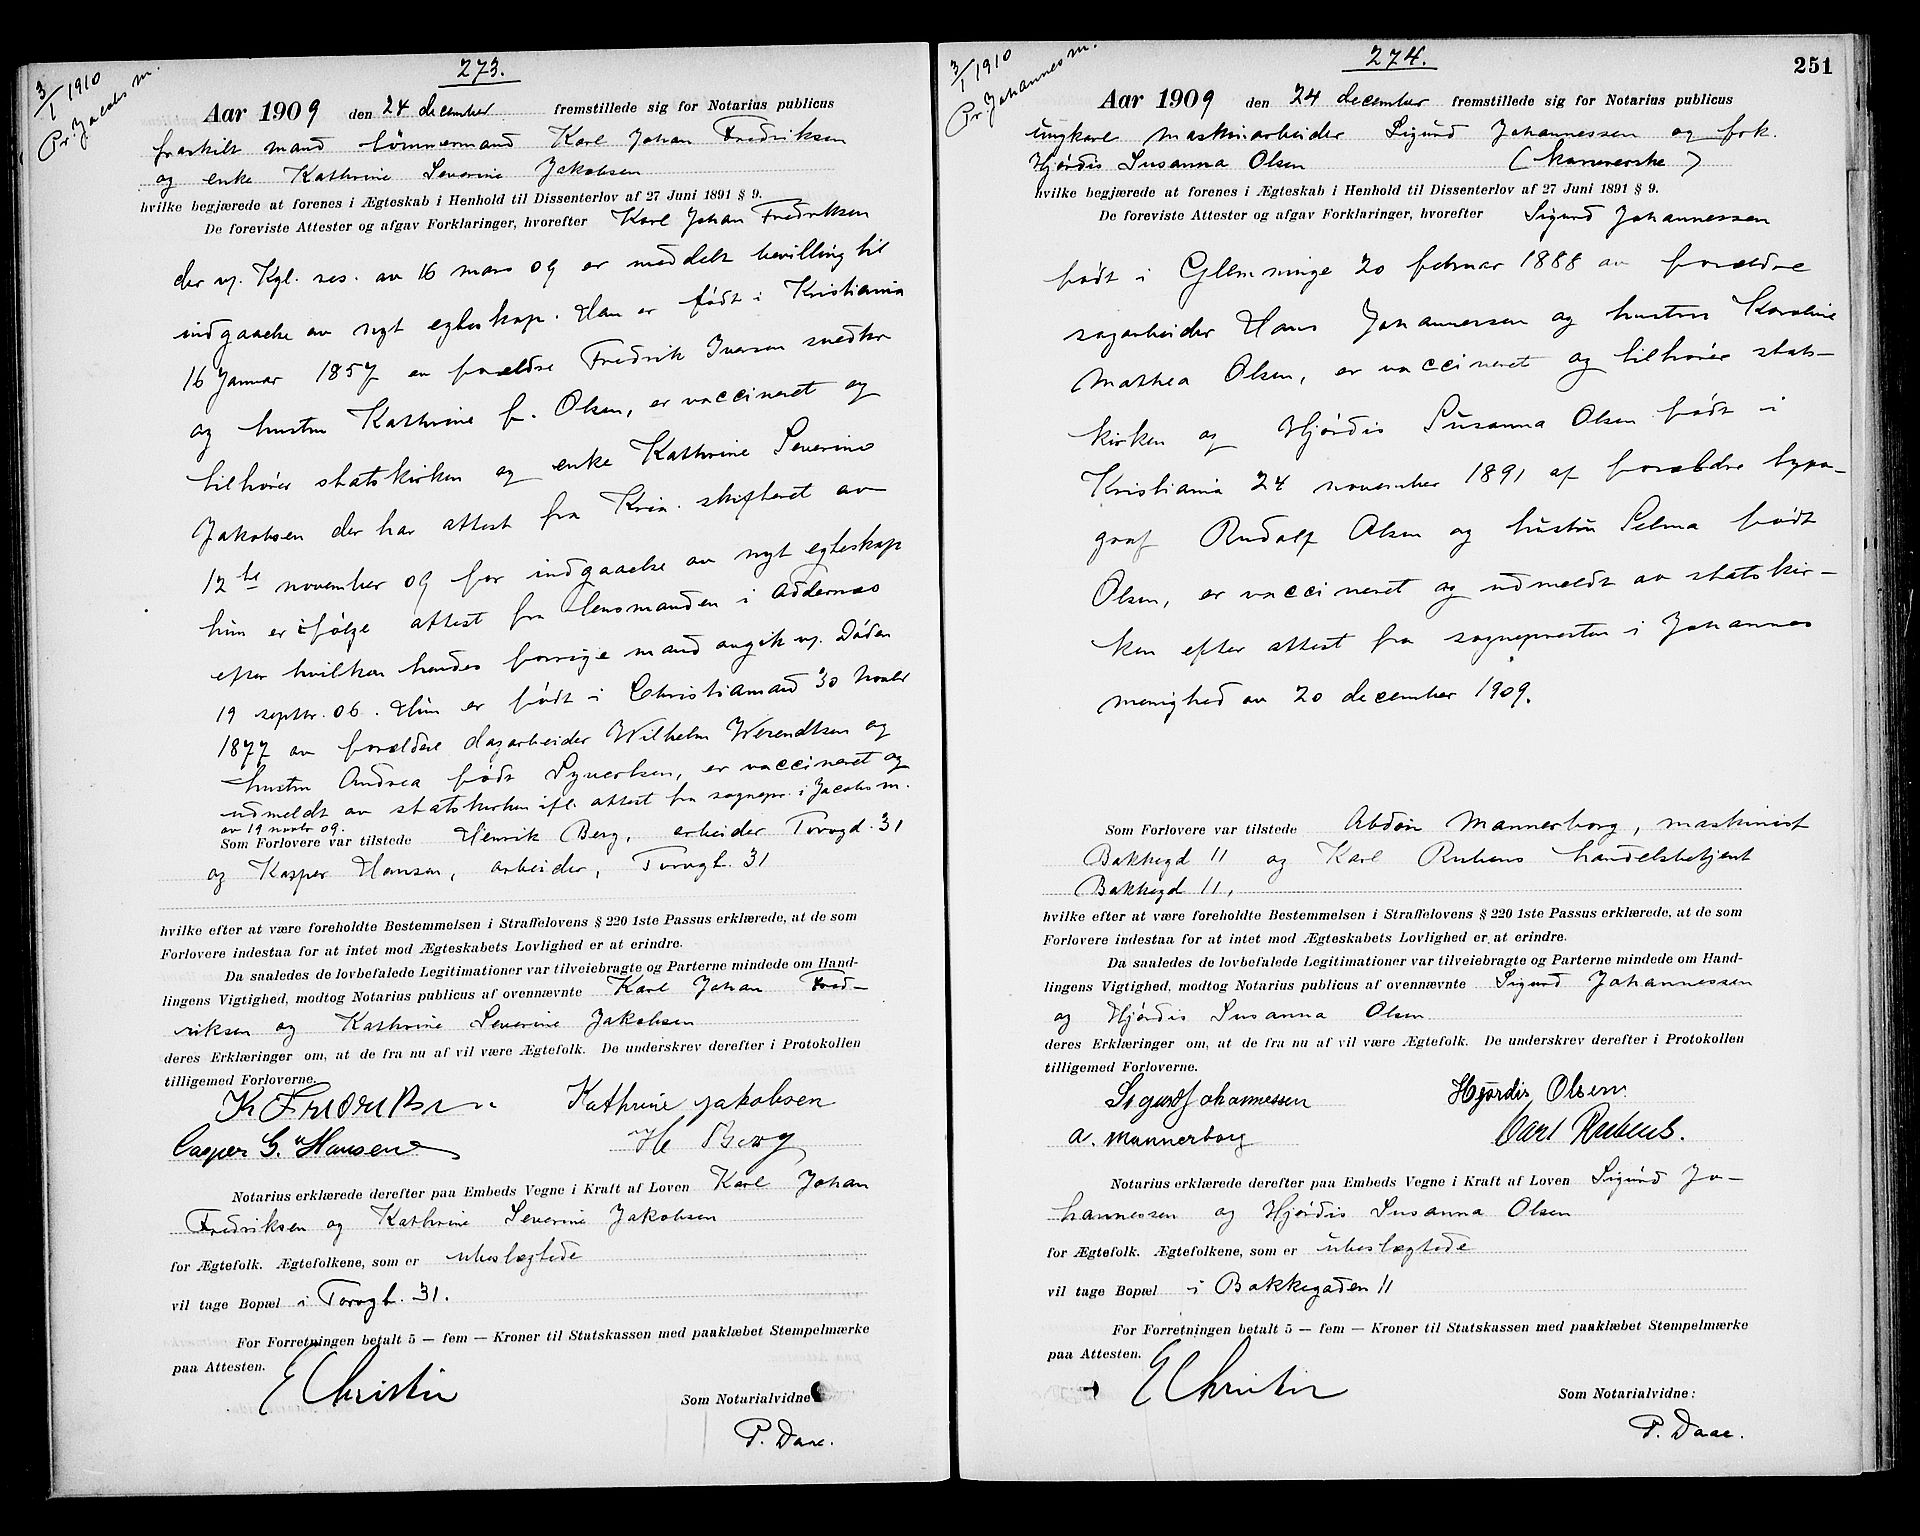 3/1 1910
Pr. Jacobs m.
273.
Aar 1909 den 24 december fremstillede sig for Notarius publicus
fraskilt mand tømmermand Karl Johan Fredriksen
og enke Kathrine Severine Jakobsen
hvilke begjærede at forenes i Ægteskab i Henhold til Dissenterlov af 27 Juni 1891 § 9.
De foreviste Attester og afgav Forklaringer, hvorefter Karl Johan Fredriksen
der v. Kgl. res. av 16 mars 09 er meddelt bevilling til
indgaaelse av nyt egteskap. Han er født i Kristiania
16 Januar 1857 av forældre Fredrik Iversen snedker
og hustru Kathrine f. Olsen, er vaccineret og
tilhører statskirken og enke Kathrine Severine
Jakobsen der har attest fra Kria. skifteret av
12te november 09 for indgaaelse av nyt egteskap
hun er ifølge attest fra lensmanden i Oddernes
efter hvilken hendes forrige mand avgik v. døden
19 septbr. 06. Hun er født i Christiansand 30 novbr
1877 av forældre dagarbeider Wilhelm Werendtsen og
hustru Andrea født Syvertsen, er vaccineret og
udmeldt av statskirken ifl. attest fra sognepr. i Jacobs m.
av 19 novbr 09.
Som Forlovere var tilstede Henrik Berg, arbeider Torvgd. 31
og Kasper Hansen, arbeider, Torvgt. 31
hvilke efter at være foreholdte Bestemmelsen i Straffelovens § 220 1ste Passus erklærede, at de som
Forlovere indestaa for at intet mod Ægteskabets Lovlighed er at erindre.
Da saaledes de lovbefalede Legitimationer var tilveiebragte og Parterne mindede om Hand-
lingens Vigtighed, modtog Notarius publicus af ovennævnte Karl Johan Fred-
riksen og Kathrine Severine Jakobsen
deres Erklæringer om, at de fra nu af vil være Ægtefolk. De underskrev derefter i Protokollen
tilligemed Forloverne.
K Fredriksen Kathrine Jakobsen
Casper G. Hansen H Berg
Notarius erklærede derefter paa Embeds Vegne i Kraft af Loven Karl Johan
Fredriksen og Kathrine Severine Jakobsen
for Ægtefolk. Ægtefolkene, som er ubeslægtede
vil tage Bopæl i Torvgt. 31.
For Forretningen betalt 5 — fem — Kroner til Statskassen med paaklæbet Stempelmærke
paa Attesten.
E Christie
Som Notarialvidne
P. Daae.
251
3/1 1910
Pr. Johannes m.
274.
Aar 1909 den 24 december fremstillede sig for Notarius publicus
ungkarl maskinarbeider Sigurd Johannessen og frk.
Hjørdis Susanna Olsen
hvilke begjærede at forenes i Ægteskab i Henhold til Dissenterlov af 27 Juni 1891 § 9.
De foreviste Attester og afgav Forklaringer, hvorefter Sigurd Johannessen
født i Glemminge 20 februar 1888 av forældre
sagarbeider Hans Johannessen og hustru Karoline
Mathea Olsen, er vaccineret og tilhører stats-
kirken og Hjørdis Susanna Olsen født i
Kristiania 24 november 1891 af forældre typo-
graf Rudolf Olsen og hustru Selma født
Olsen, er vaccineret og udmeldt av statskir-
ken efter attest fra sognepresten i Johannes
menighed av 20 december 1909.
Som Forlovere var tilstede Abdon Mannerborg, maskinist
Bakkegd 11 og Karl Rubens handelsbetjent
Bakkegd 11,
hvilke efter at være foreholdte Bestemmelsen i Straffelovens § 220 1ste Passus erklærede, at de som
Forlovere indestaa for at intet mod Ægteskabets Lovlighed er at erindre.
Da saaledes de lovbefalede Legitimationer var tilveiebragte og Parterne mindede om Hand-
lingens Vigtighed, modtog Notarius publicus af ovennævnte Sigurd Johannessen
og Hjørdis Susanna Olsen
deres Erklæringer om, at de fra nu af vil være Ægtefolk. De underskrev derefter i Protokollen
tilligemed Forloverne.
Sigurd Johannessen Hjørdis Olsen.
A. Mannerborg Carl Rubens.
Notarius erklærede derefter paa Embeds Vegne i Kraft af Loven Sigurd Jo-
hannessen og Hjørdis Susanna Olsen
for Ægtefolk. Ægtefolkene, som er ubeslægtede
vil tage Bopæl i Bakkegaden 11
For Forretningen betalt 5 — fem — Kroner til Statskassen med paaklæbet Stempelmærke
paa Attesten.
E Christie
Som Notarialvidne:
P. Daae.